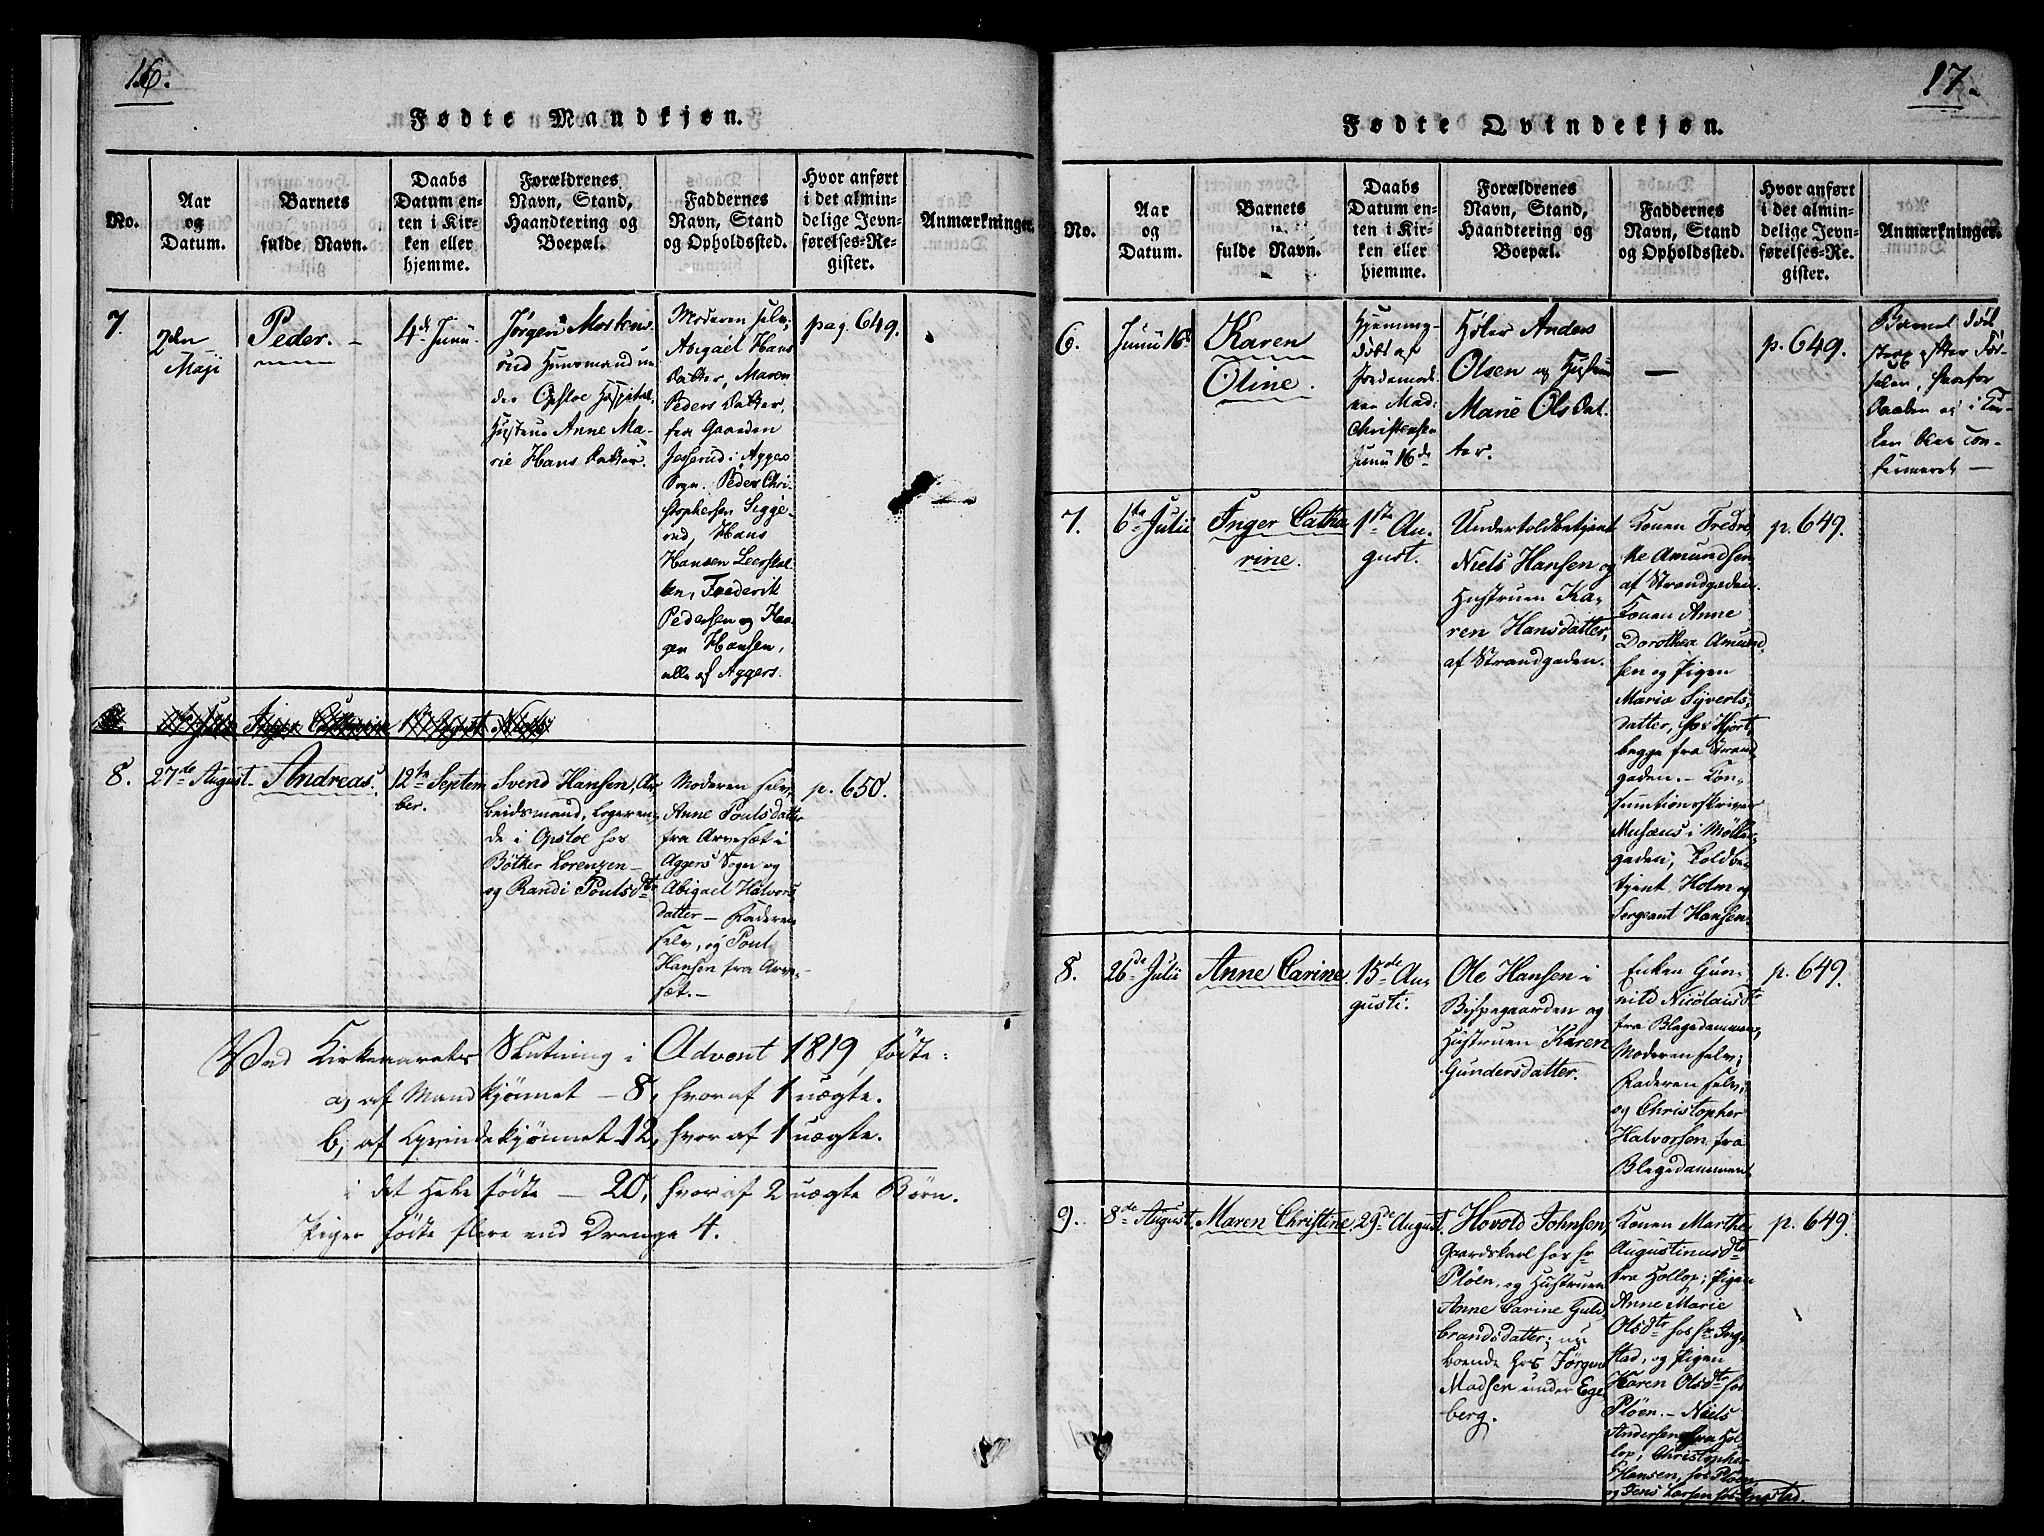 16.
Fødte Mandkjøn.
No.
Aar
og
Datum.
Barnets
fulde Navn.
Daabs
Datum en-
ten i Kir-
ken eller
hjemme.
Forældrenes
Navn, Stand,
Haandtering og
Boepæl.
Faddernes
Navn, Stand
og Opholdssted.
Hvor anført
i det almin-
delige Jevn-
førelses-Re-
gister.
Anmærkninger.
7.
2den
Maji
Peder.
4de Junii
Jørgen Mostens
rud Huusmand un
der Opsloe Hospital
Hustrue Anne Ma-
rie Hans Datter.
Moderen selv,
Abigael Hans
Datter, Maren
Peders Datter,
fra Gaarden
i Aggers
Sogn. Peder Chri-
stophersen Sigge-
rud, Hans
Hansen Leerskal-
len, Frederik
Pedersen og
Hansen,
alle af Aggers.
pag. 649.
8.
27de August
Andreas.
12te Septem
ber.
Svend Hansen, Ar
beidsmand, logeren-
de i Opsloe hos
Bøtker Lorenzen
og Randi Poulsdtr
Moderen selv,
Anne Poulsdatter
fra Arvesæt i
Aggers Sogn og
Abigael Halvors
datter — Faderen
selv, og Poul
Hansen fra Arve-
sæt.—
p. 650.
Ved Kirkeaarets Slutning i Advent 1819, fødte:
a, af Mandkjønnet — 8, hvoraf 1 uægte.
b, af Qvindekjønnet 12, hvoraf 1 uægte.
i det Hele fødte — 20, hvoraf 2 uægte Børn.
Piger fødte flere end Drenge 4.
17.
Fødte Qvindekjøn.
No.
Aar
og
Datum.
Barnets
fulde Navn.
Daabs
Datum en-
ten i Kir-
ken eller
hjemme.
Forældrenes
Navn, Stand,
Haandtering og
Boepæl.
Faddernes
Navn, Stand
og Opholdssted.
Hvor anført
i det almin-
delige Jevn-
førelses-Re-
gister.
Anmærkninger.
6.
Junii 16de
Karen
Oline.
Hjemme-
døbt af
Jordemode-
ren Mad:
Christensen
Junii 16de
Anders
Olsen og Hustrue
Marie Ols Dat-
ter.
—
p. 649.
Barnet døde
strax efter Fød-
selen, hvorfor
Daaben ei i Kir-
ken blev con-
firmeret —
7.
6te Julii
Inger Catha
rine.
1ste Au-
gust.
Undertoldbetjent
Niels Hansen og
Hustruen Ka-
ren Hansdatter,
af Strandgaden.
Konen Fredri-
ke Amundsen
af Strandgaden.
Konen Anne
Dorothea Amund
sen og Pigen
Maria Syverts-
datter, hos Hjort,
begge fra Strand
gaden. — Con-
sumtionsskriver
Musæus i Møller-
gaden, Toldbe-
tjent Holm og
Sergeant Hansen.
p. 649.
8.
26de Julii
Anne Carine.
15de Au-
gusti.
Ole Hansen i
Bispegaarden og
Hustruen Karen
Gundersdatter.
Enken Gun-
nild Nicolaisdtr
fra Blegedammen,
Moderen selv;
Faderen selv,
og Christopher
Halvorsen fra
Blegedammen
p. 649.
9.
8de August.
Maren Christine
29de August.
Hovold Johnsen,
Gaardskarl hos Hr
Pløen, og Hustruen
Anne Carine Guld-
brandsdatter; nu
boende hos Jørgen
Madsen under Ege-
berg.
Konen Marthe
Augustinusdtr
fra Hollop; Pigen
Anne Marie
Olsdtr hos Hr. Ing-
stad, og Pigen
Karen Olsdtr hos
Pløen. — Niels
Andersen fra Hol-
lop, Christopher
Hansen, hos Pløen
og Jens Larsen hos Ingstad.
p. 649.